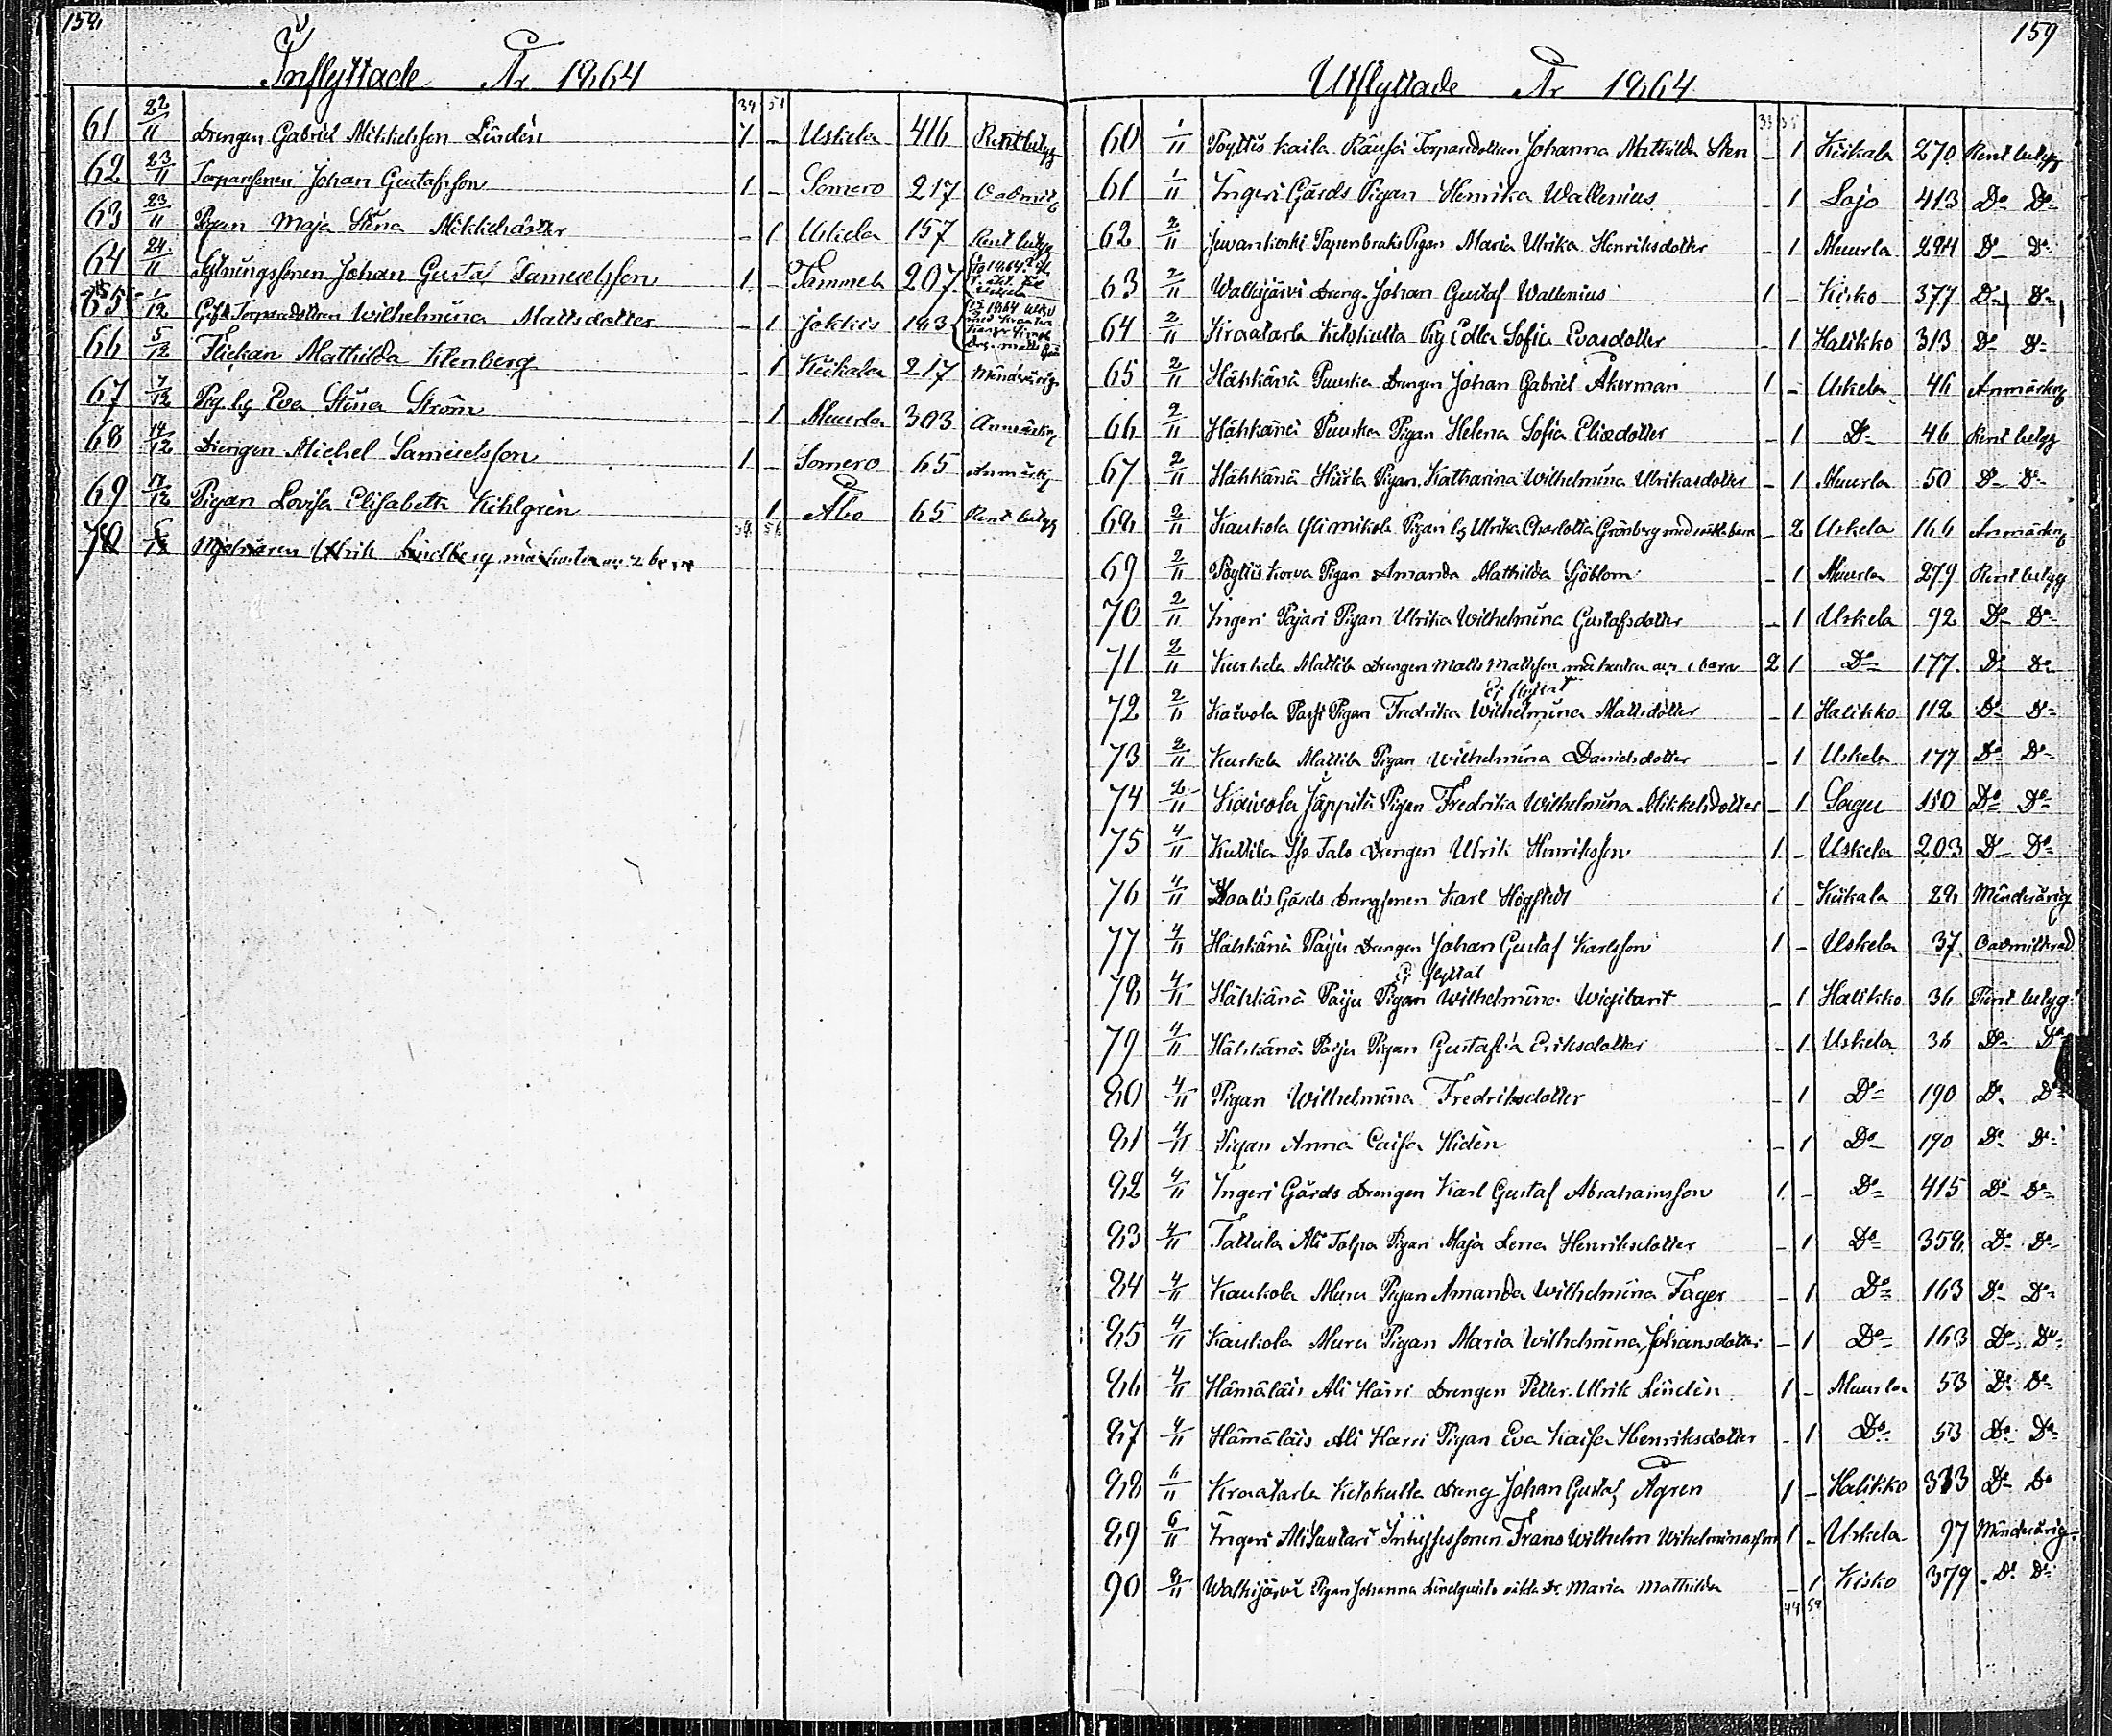 158
Inflyttade År 1864
39 51
61 22/11 Drengen Gabriel Mikkelsson Lindén 1 - Uskela 416 Rent betyg
62 23/11 Torparesonen Johan Gustafsson 1 - Somero 217 Oadmitt
63 23/11 Pigan Maja Stina Mikkelsdotter - 1 Uskela 157 Rent betyg
64 24/11 Sytningssonen Johan Gustaf Samuelsson 1 - Tammela 207
65 1/12 Gift Torparedottren Wilhelmina Mattsdotter - 1 Jokkis 193
66 5/12 Flickan Mathilda Klenberg - 1 Kiikala 217 Minderårig
67 7/12 Pig. lg Eva Stina Ström - 1 Muurla 303 Anmärkn
68 14/12 Drengen Michel Samuelsson 1 - Somero 65 Anmärkn
69 17/12 Pigan Lovisa Elisabeth Kihlgrén 1 Åbo 65 Rent betyg
70 Mjolnaren Ulrik Lindberg m hustru o 2 barn
159
Utflyttade År 1864
60 1/11 Pöytiö Kaila Räusä Torparedottren Johanna Mathilda Sten - 1 Kiikala 270 Rent betyg
61 1/11 Ingeri Gårds Pigan Henrika Wallenius - 1 Lojo 413 Do Do
62 2/11 Juvankoski Papersbruks Pigan Maria Ulrika Henriksdotter - 1 Muurla 284 Do Do
63 2/11 Walkijärvi Dreng. Johan Gustaf Wallenius 1 - Kisko 377 Do Do
64 2/11 Kraatarla Ketokulta Pig Edla Sofia Evasdotter - 1 Halikko 313 Do Do
65 2/11 Hähkänä Puuska Drengen Johan Gabriel Åkerman 1 - Uskela 46 Anmärkn
66 2/11 Hähkänä Puuska Pigan Helena Sofia Eliædotter - 1 Do 46 Rent betyg
67 2/11 Hähkänä Hiirla Pigan Katharina Wilhelmina Ulrikasdotter - 1 Muurla 50 Do Do
68 2/11 Kaukola Yli mikola Pigan lg Ulrika Charlotta Grönberg med oäkta barn - 2 Uskela 166 Anmärkn
69 2/11 Pöytiö Korva Pigan Amanda Mathilda Sjöblom - 1 Muurla 279 Rent betyg
70 2/11 Ingeri Pajari Pigan Ulrika Wilhelmina Gustafsdotter - 1 Uskela 92 Do Do
71 2/11 Kurkela Mattila Drengen Matts Mattsson m hustru o 1 barn 2 1 Do 177 Do Do
Ej flyttat
72 2/11 Kaivola Passi Pigan Fredrika Wilhelmina Mattsdotter - 1 Halikko 112 Do Do
73 2/11 Kurkela Mattila Pigan Wilhelmina Danielsdotter - 1 Uskela 177 Do Do
74 2/11 Kaivola Jäppilä Pigan Fredrika Wilhelmina Mikkelsdotter - 1 Sagu 110 Do Do
75 4/11 Kultila Iso Talo Drengen Ulrik Henriksson 1 - Uskela 203 Do Do
76 4/11 Koalis Gårds Drengsonen Karl Högstedt 1 - Kiikala 28 Minderårig
77 4/11 Hähkänä Paiju Drengen Johan Gustaf Karlsson 1 - Uskela 37 Oadmitterad
Ej flyttat
78 4/11 Hähkänä Paiju Pigan Wilhelmina Wigilant - 1 Halikko 36 Rent betyg
79 4/11 Hähkänä Paiju Pigan Gustafva Eriksdotter - 1 Uskela 36 Do Do
80 4/11 Pigan Wilhelmina Fredriksdotter - 1 Do 190 Do Do
81 4/11 Pigan Anna Caisa Hidén - 1 Do 190 Do Do
82 4/11 Ingeri Gårds Drengen Karl Gustaf Abrahamsson 1 - Do 415 Do Do
83 4/11 Tattula Ali Tolpa Pigan Maja Lena Henriksdotter - 1 Do 358 Do Do
84 4/11 Kaukola Muru Pigan Amanda Wilhelmina Fager - 1 Do 163 Do Do
85 4/11 Kaukola Muru Pigan Maria Wilhelmina Johansdotter - 1 Do 163 Do Do
86 4/11 Hämäläis Ali Härri Drengen Petter Ulrik Lindén 1 - Muurla 53 Do Do
87 4/11 Hämäläis Ali Harri Pigan Eva Kaisa Henriksdotter - 1 Do 53 Do Do
88 6/11 Kraatarla Ketokulta Dreng Johan Gustaf Ågren 1 - Halikko 313 Do Do
89 6/11 Ingeri Ali Suutari Inhysessonen Frans Wilhelm Wilhelminasson 1 - Uskela 97 Minderårig
90 8/11 Walkijärvi Pigan Johanna Lindquists oäkta dr. Maria Mathilda - 1 Kisko 379 Do Do
44 59